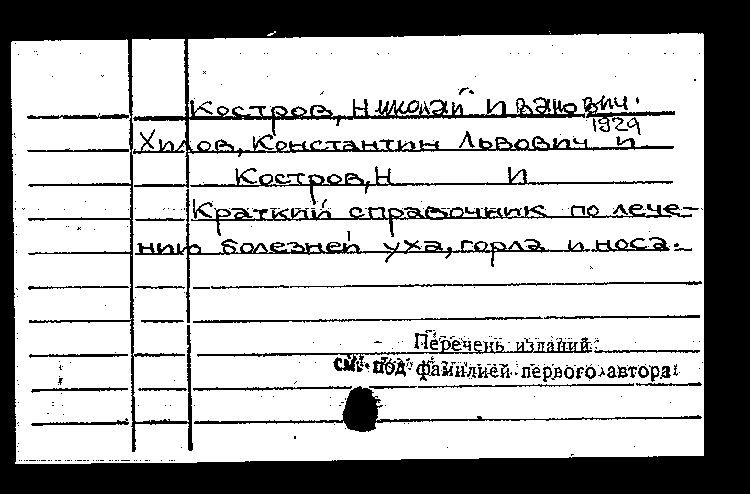 Костров, Николай Иванович.
1929
Хилов, Константин Львович и
Костров, Н И
Краткий справочник по лече-
нию болезней уха, горла и носа.
Перечень изданий
см. под фамилией первого автора